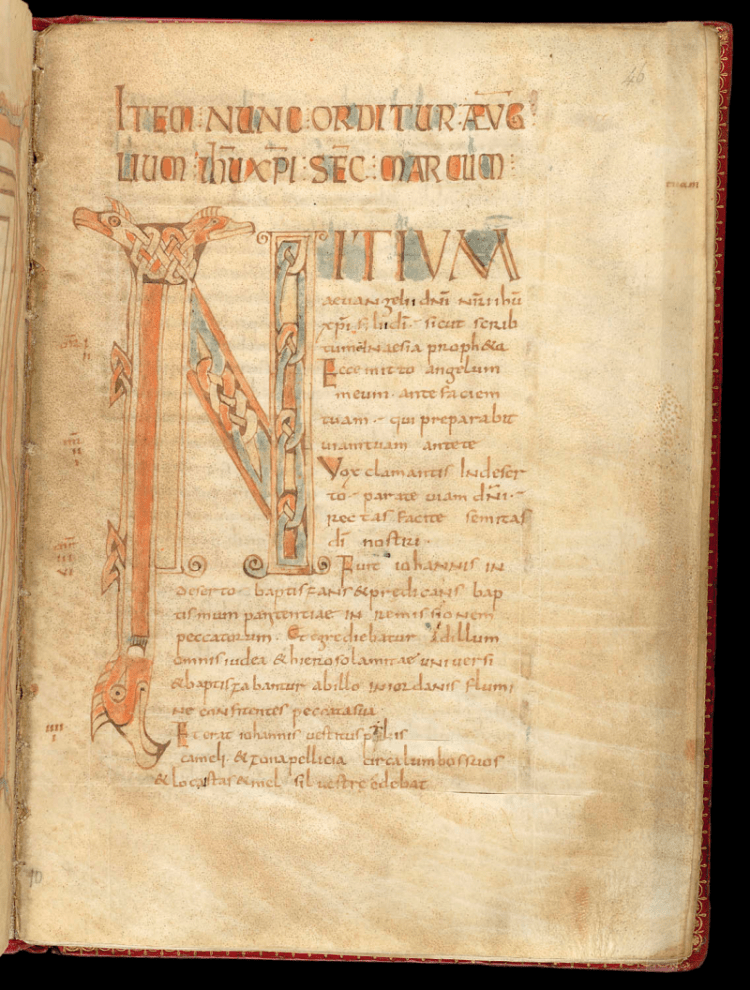 46
ITEM NUNC ORDITUR ÆVG
LIUM IHU XPI SEC MARCUM
INITIUM
aevangelii dni nri ihu
xpi filii di · sicut scrib
tum è in aesia propheta
Ecce mitto angelum
meum · ante faciem
tuam · qui preparabit
viam tuam ante te
Vox clamantis In deser
to · parate viam dni ·
rectas facite semitas
di nostri ·
Fuit iohannis in
deserto baptizans & predicans bap
tismum paenitentiae in remissionem
peccatorum · Et egrediebatur ad illum
omnis iudea & hierosolamitae universi
& baptizabantur ab illo in iordanis flumi
ne confitentes peccata sua
Et erat iohannis vestitus pilis
cameli · & zona pellicia circa lumbos suos
& locustas & mel silvestre edebat
10